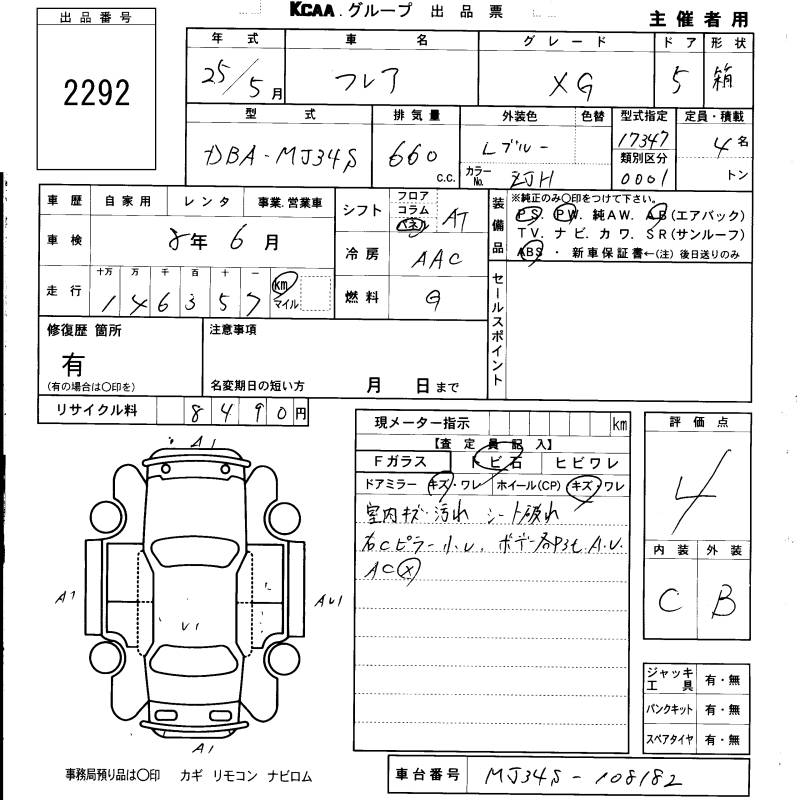 KCAA.グループ 出品票
主催者用
出品番号
2292
年式 車名 グレード ドア 形状
25/5月 フレア XG 5 箱
型式 排気量 外装色 色替 型式指定 定員・積載
DBA-MJ34S 660 c.c. Lブルー 17347 4名
カラーNo. ZJH 類別区分 0001 トン
車歴 自家用 レンタ 事業.営業車
車検 8年6月
走行 十万 万 千 百 十 一
146357 km マイル
シフト フロア コラム パネル AT
冷房 AAC
燃料 G
装備品 ※純正のみ○印をつけて下さい。
PS. PW. 純AW. AB(エアバック)
TV. ナビ. カワ. SR(サンルーフ)
ABS ・ 新車保証書←(注) 後日送りのみ
セールスポイント
修復歴 箇所
有
(有の場合は○印を)
注意事項
名変期日の短い方 月 日まで
リサイクル料 8490円
現メーター指示 km
【査定員記入】
Fガラス トビ石 ヒビワレ
ドアミラー キズ・ワレ ホイール(CP) キズ・ワレ
室内キズ 汚れ シート破れ
右Cピラー小U. ボデー各所 A.U.
AC X
評価点
4
内装 外装
C B
ジャッキ工具 有・無
パンクキット 有・無
スペアタイヤ 有・無
A1
A1
AU1
V1
A1
事務局預り品は○印 カギ リモコン ナビロム
車台番号 MJ34S-108182